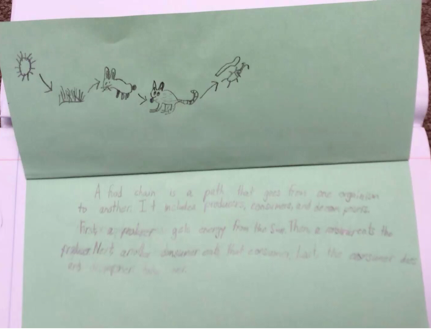 A food chain is a path that goes from one organism
to another. It includes producers, consumers, and decomposers.
First a producer gets energy from the Sun. Then a consumer eats the
producer. Next another consumer eats that consumer. Last the consumer dies